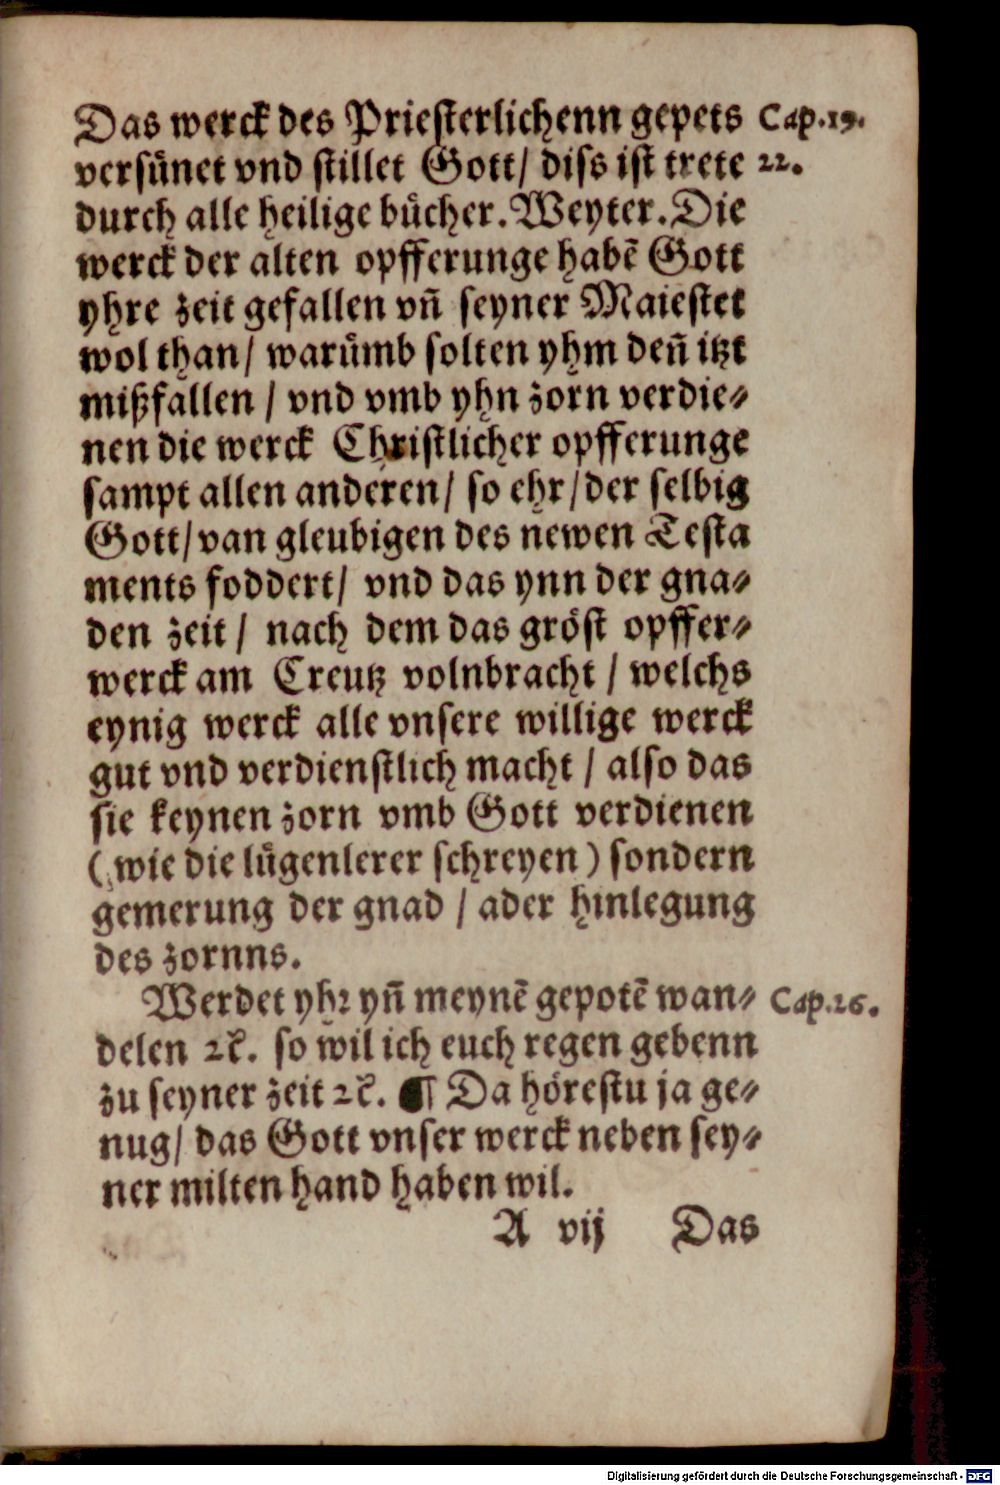 Das werck des Priesterlichenn gepets Cap.19.
versůnet vnd stillet Gott/ diss ist trete 22.
durch alle heilige bůcher. Weyter. Die
werck der alten opfferunge habē Gott
yhre zeit gefallen vn̄ seyner Maiestet
wol than/ warůmb solten yhm den̄ itzt
mißfallen / vnd vmb yhn zorn verdie-
nen die werck Christlicher opfferunge
sampt allen anderen/ so ehr/der selbig
Gott/van gleubigen des newen Testa
ments foddert/ vnd das ynn der gna-
den zeit / nach dem das grőst opffer-
werck am Creutz volnbracht / welchs
eynig werck alle vnsere willige werck
gut vnd verdienstlich macht / also das
sie keynen zorn vmb Gott verdienen
(wie die lůgenlerer schreyen) sondern
gemerung der gnad / ader hinlegung
des zornns.
Werdet yhr yn̄ meynē gepotē wan- Cap.26.
delen ꝛc̄. so wil ich euch regen gebenn
zu seyner zeit ꝛc̄. ¶ Da hőrestu ja ge-
nug/ das Gott vnser werck neben sey-
ner milten hand haben wil.
A vij Das
Digitalisierung gefördert durch die Deutsche Forschungsgemeinschaft - DFG